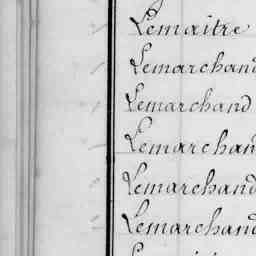 Lemaitre
Lemarchand
Lemarchand
Lemarchand
Lemarchand
Lemarchand